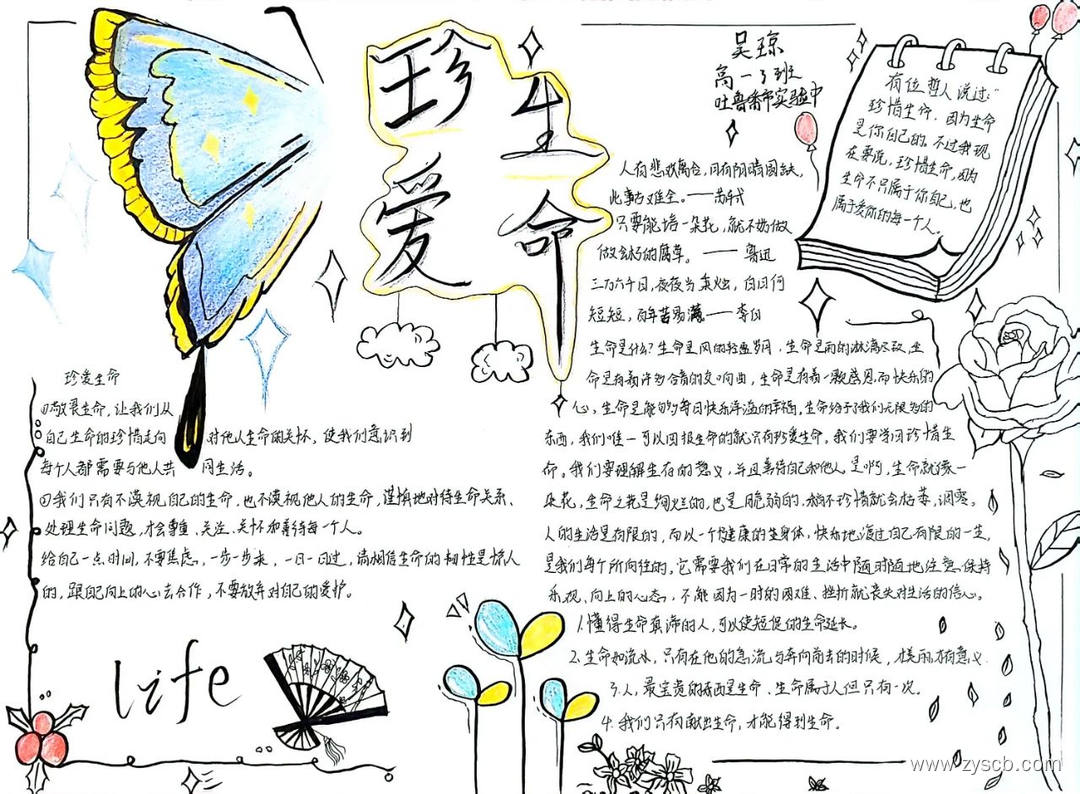 珍爱
生命
吴琼
高一3班
吐鲁番市实验中
有位哲人说过：“
珍惜生命，因为生命
是你自己的，不过我现
在要说，珍惜生命，因为
生命不只属于你自己，也
属于爱你的每一个人。
人有悲欢离合，月有阴晴圆缺，
此事古难全。——苏轼
只要能培一朵花，就不妨做
做会朽的腐草。——鲁迅
三万六千日，夜夜当秉烛，白日何
短短，百年苦易满——李白
生命是什么？生命是风的轻盈岁月，生命是雨的淋漓尽致，生
命是有着许多合音的交响曲，生命是有着一颗感恩而快乐的
心，生命是能够每日快乐洋溢的幸福，生命给予了我们无限多的
东西，我们唯一可以回报生命的就只有珍爱生命。我们要学会珍惜生
命。我们要理解生存的意义，并且善待自己和他人。是啊，生命就像一
朵花，生命之花是绚烂的，也是脆弱的，稍不珍惜就会枯萎，凋零。
人的生活是有限的，而以一个健康的生身体，快乐地渡过自己有限的一生，
是我们每个所向往的，它需要我们在日常的生活中随时随地注意保持
乐观、向上的心态，不能因为一时的困难、挫折就丧失对生活的信心。
1.懂得生命真谛的人，可以使短促的生命延长。
2.生命如流水，只有在他的急流与奔向前去的时候，才美丽，才有意义
3.人，最宝贵的东西是生命，生命属于人但只有一次。
4.我们只有献出生命，才能得到生命。
珍爱生命
敬畏生命，让我们从
自己生命的珍惜走向 对他人生命的关怀，使我们意识到
每个人都需要与他人共 同生活。
我们只有不漠视自己的生命，也不漠视他人的生命，谨慎地对待生命关系、
处理生命问题，才会尊重、关注、关怀和善待每个人。
给自己一点时间，不要焦虑，一步一步来，一日一日过，请相信生命的韧性是惊人
的，跟自己向上的心去合作，不要放弃对自己的爱护。
life
www.zyscb.com